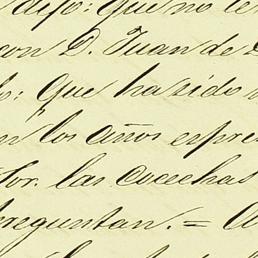 dijo: Que no le
con D. Juan de
lo: Que ha sido
n los años espre
tor. las cosechas
preguntan. =